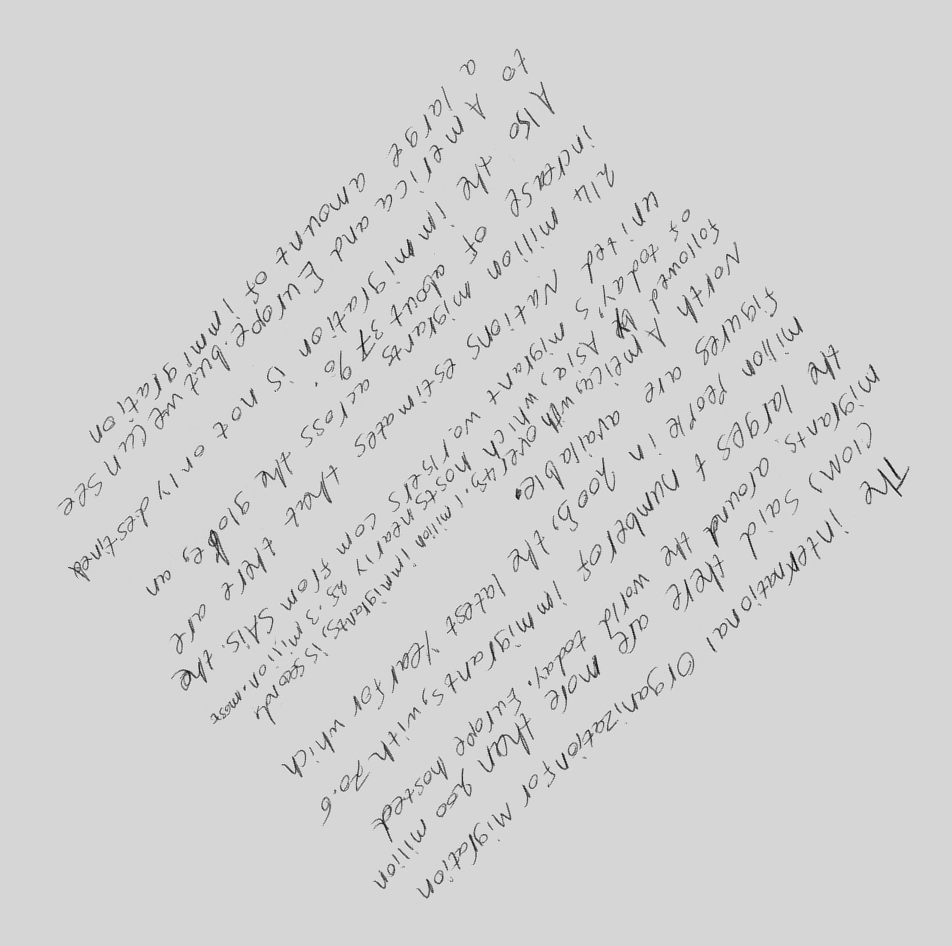 The international Organization for Migration
(IOM) said there are more than 200 million
migrants around the world today. Europe hosted
the largest number of immigrants, with 70.6
million people in 2005, the latest year for which
figures are available.
North America, with over 45.1 million immigrants, is second,
followed by Asia, which hosts nearly 25.3 million. most
of today's migrant workers com from SAis. the
united Nations estimates that there are
214 million migrants across the globe, an
increase of about 37%.
Also the immigration is not only destined
to America and Europe. but we can see
a large amount of immigration